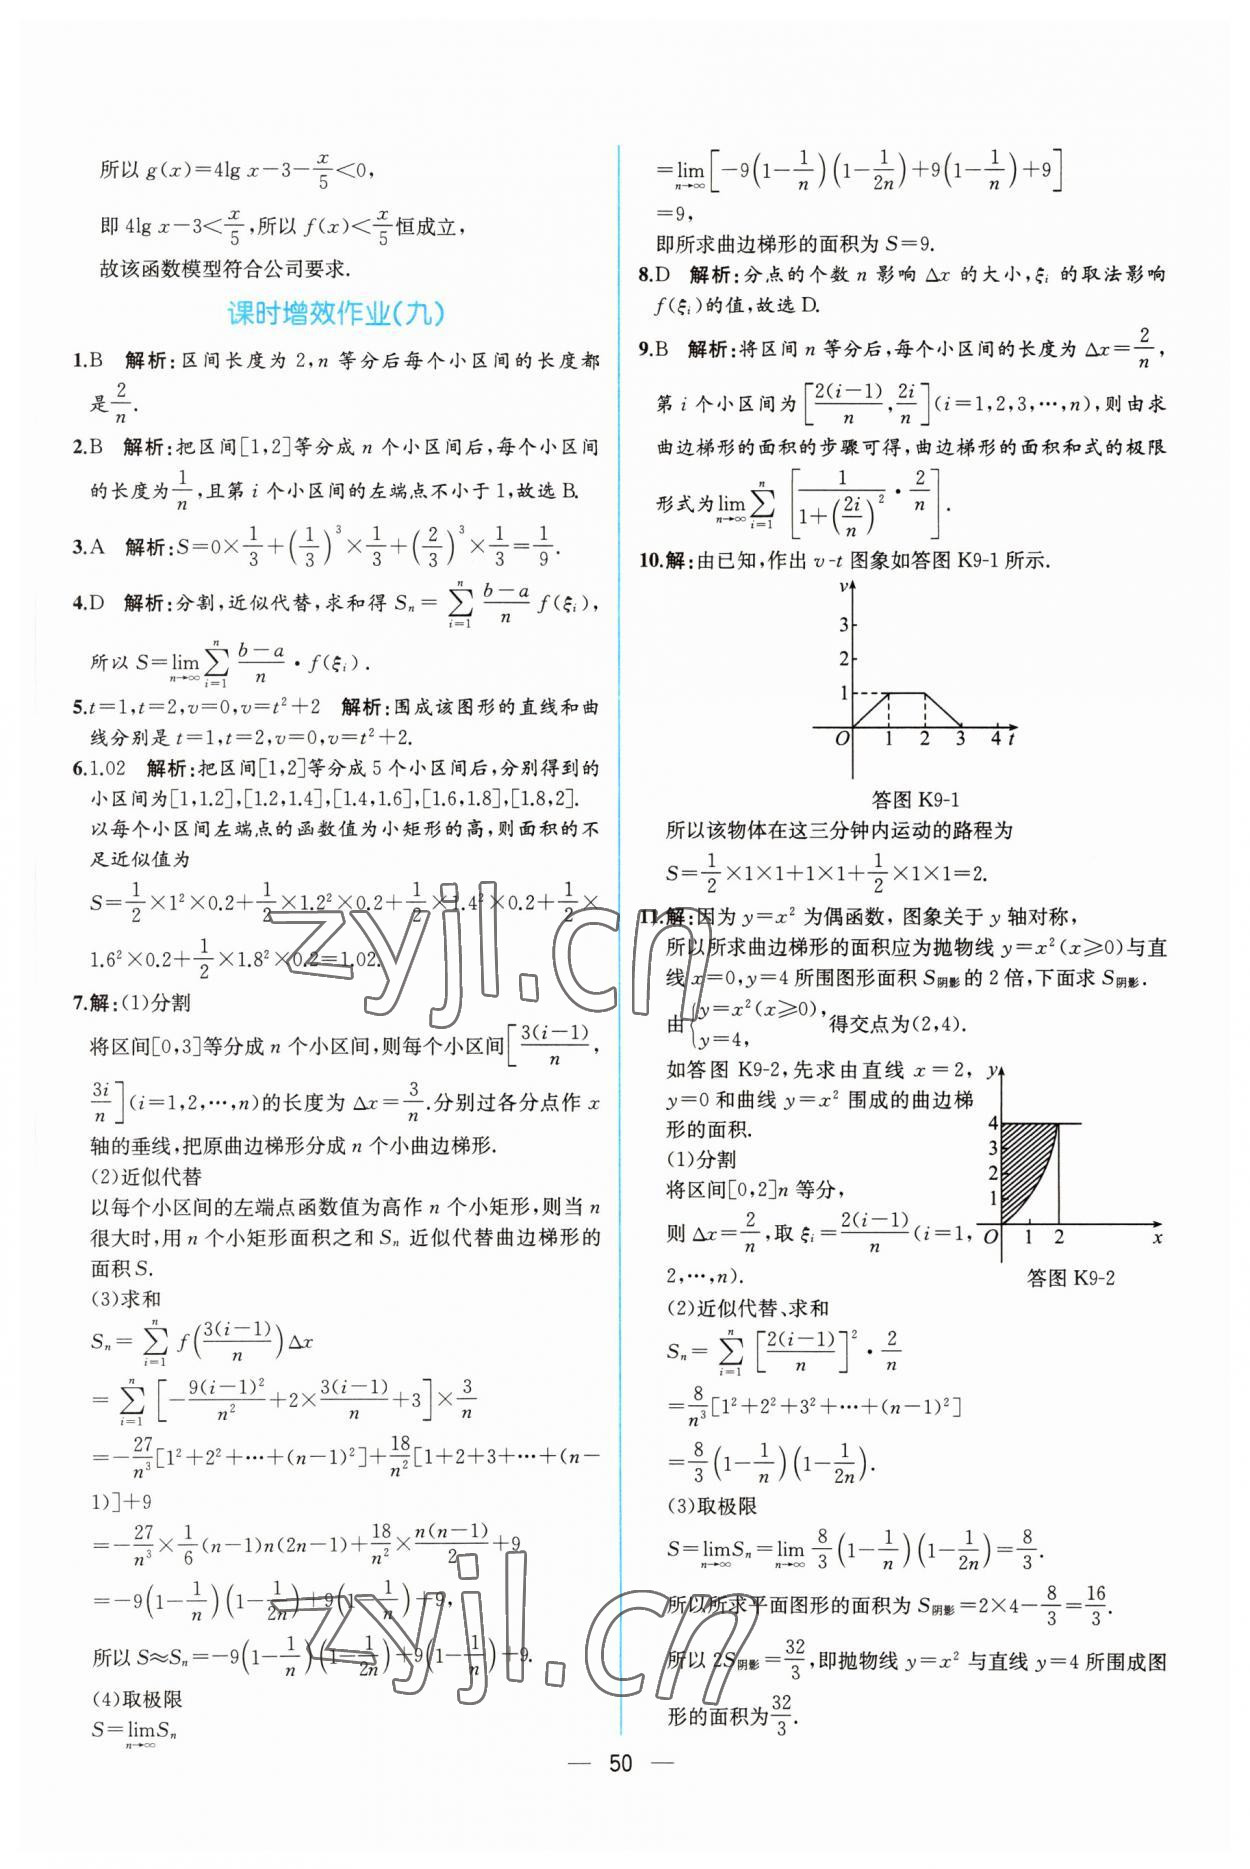 所以 g(x)=4lg x-3-x/5<0,
即 4lg x-3<x/5,所以 f(x)<x/5恒成立,
故该函数模型符合公司要求.
课时增效作业(九)
1.B 解析:区间长度为 2,n 等分后每个小区间的长度都
是2/n.
2.B 解析:把区间[1,2]等分成 n 个小区间后,每个小区间
的长度为1/n,且第 i 个小区间的左端点不小于1,故选B.
3.A 解析:S=0×1/3+(1/3)³×1/3+(2/3)³×1/3=1/9.
4.D 解析:分割,近似代替,求和得 Sₙ=∑_{i=1}^{n} (b-a)/n f(ξᵢ),
所以 S=lim_{n→∞}∑_{i=1}^{n} (b-a)/n·f(ξᵢ).
5.t=1,t=2,v=0,v=t²+2 解析:围成该图形的直线和曲
线分别是 t=1,t=2,v=0,v=t²+2.
6.1.02 解析:把区间[1,2]等分成 5 个小区间后,分别得到的
小区间为[1,1.2],[1.2,1.4],[1.4,1.6],[1.6,1.8],[1.8,2].
以每个小区间左端点的函数值为小矩形的高,则面积的不
足近似值为
S=1/2×1²×0.2+1/2×1.2²×0.2+1/2×1.4²×0.2+1/2×
1.6²×0.2+1/2×1.8²×0.2=1.02.
7.解:(1)分割
将区间[0,3]等分成 n 个小区间,则每个小区间[3(i-1)/n,
3i/n](i=1,2,…,n)的长度为 Δx=3/n.分别过各分点作 x
轴的垂线,把原曲边梯形分成 n 个小曲边梯形.
(2)近似代替
以每个小区间的左端点函数值为高作 n 个小矩形,则当 n
很大时,用 n 个小矩形面积之和 Sₙ 近似代替曲边梯形的
面积 S.
(3)求和
Sₙ=∑_{i=1}^{n} f(3(i-1)/n)Δx
=∑_{i=1}^{n} [-9(i-1)²/n²+2×3(i-1)/n+3]×3/n
=-27/n³[1²+2²+…+(n-1)²]+18/n²[1+2+3+…+(n-
1)]+9
=-27/n³×1/6(n-1)n(2n-1)+18/n²×n(n-1)/2+9
=-9(1-1/n)(1-1/2n)+9(1-1/n)+9,
所以 S≈Sₙ=-9(1-1/n)(1-1/2n)+9(1-1/n)+9.
(4)取极限
S=lim_{n→∞}Sₙ
=lim_{n→∞}[-9(1-1/n)(1-1/2n)+9(1-1/n)+9]
=9,
即所求曲边梯形的面积为 S=9.
8.D 解析:分点的个数 n 影响 Δx 的大小,ξᵢ 的取法影响
f(ξᵢ)的值,故选D.
9.B 解析:将区间 n 等分后,每个小区间的长度为 Δx=2/n,
第 i 个小区间为[2(i-1)/n,2i/n](i=1,2,3,…,n),则由求
曲边梯形的面积的步骤可得,曲边梯形的面积和式的极限
形式为lim_{n→∞}∑_{i=1}^{n} [1/(1+(2i/n)²)·2/n].
10.解:由已知,作出 v-t 图象如答图 K9-1 所示.
v
3
2
1
O 1 2 3 4 t
答图 K9-1
所以该物体在这三分钟内运动的路程为
S=1/2×1×1+1×1+1/2×1×1=2.
11.解:因为 y=x² 为偶函数,图象关于 y 轴对称,
所以所求曲边梯形的面积应为抛物线 y=x²(x≥0)与直
线 x=0,y=4 所围图形面积 S阴影的 2 倍,下面求 S阴影.
由{y=x²(x≥0), y=4, 得交点为(2,4).
如答图 K9-2,先求由直线 x=2,
y=0 和曲线 y=x² 围成的曲边梯
形的面积.
(1)分割
将区间[0,2]n 等分,
则 Δx=2/n,取 ξᵢ=2(i-1)/n(i=1,
2,…,n).
y
4
3
2
1
O 1 2 x
答图 K9-2
(2)近似代替、求和
Sₙ=∑_{i=1}^{n} [2(i-1)/n]²·2/n
=8/n³[1²+2²+3²+…+(n-1)²]
=8/3(1-1/n)(1-1/2n).
(3)取极限
S=lim_{n→∞}Sₙ=lim_{n→∞} 8/3(1-1/n)(1-1/2n)=8/3.
所以所求平面图形的面积为 S阴影=2×4-8/3=16/3.
所以 2S阴影=32/3,即抛物线 y=x² 与直线 y=4 所围成图
形的面积为32/3.
— 50 —
zyjl.cn
zyjl.cn